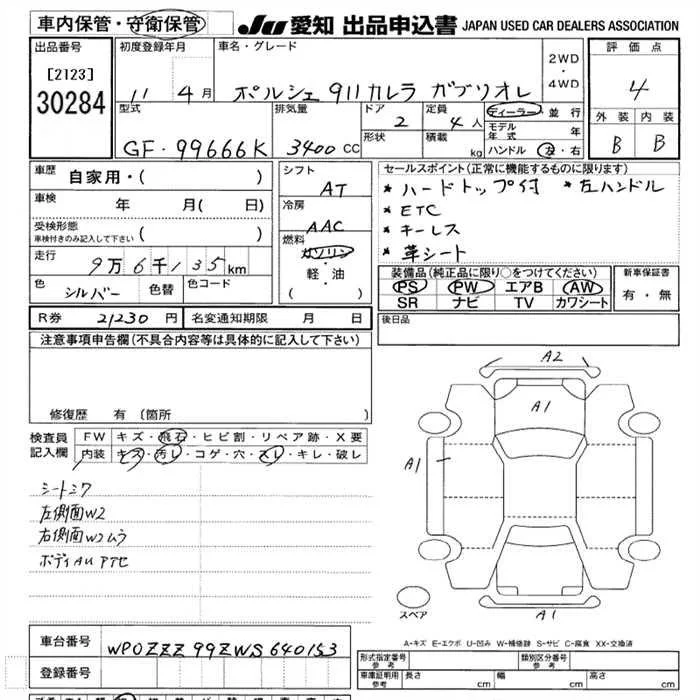 車内保管・守衛保管
JU 愛知 出品申込書 JAPAN USED CAR DEALERS ASSOCIATION
出品番号
[2123]
30284
初度登録年月
11 4月
車名・グレード
ポルシェ 911 カレラ カブリオレ
2WD
・
4WD
評価点
4
外装 内装
B B
型式
GF-99666K
排気量
3400 CC
ドア
2
形状
定員
4人
積載
kg
ディーラー・並行
モデル年式 年
ハンドル 左・右
車歴
自家用・( )
車検
年 月( 日)
受検形態
車検付きのみ記入して下さい ( )
走行
9万6千135km
色
シルバー
色替
色コード
シフト
AT
冷房
AAC
燃料
ガソリン
軽・油
( )
セールスポイント(正常に機能するものに限ります)
* ハードトップ付 * 左ハンドル
* ETC
* キーレス
* 革シート
装備品(純正品に限り○をつけてください)
PS PW エアB AW
SR ナビ TV カワシート
新車保証書
有・無
R券 21230円 名変通知期限 月 日
後日品
注意事項申告欄(不具合内容等は具体的に記入して下さい)
修復歴 有 (箇所 )
検査員
記入欄
FW キズ・飛石・ヒビ割・リペア跡・X要
内装 キズ・汚レ・コゲ・穴・スレ・キレ・破レ
左側面W2
右側面W2ムラ
A2
A1
A1
A1
スペア
A-キズ E-エクボ U-凹み W-補修跡 S-サビ C-腐食 XX-交換済
車台番号
WP0ZZZ99ZWS640153
登録番号
形式指定番号
参考
類別区分番号
参考
車庫証明用
参考
長さ cm 幅 cm 高さ cm